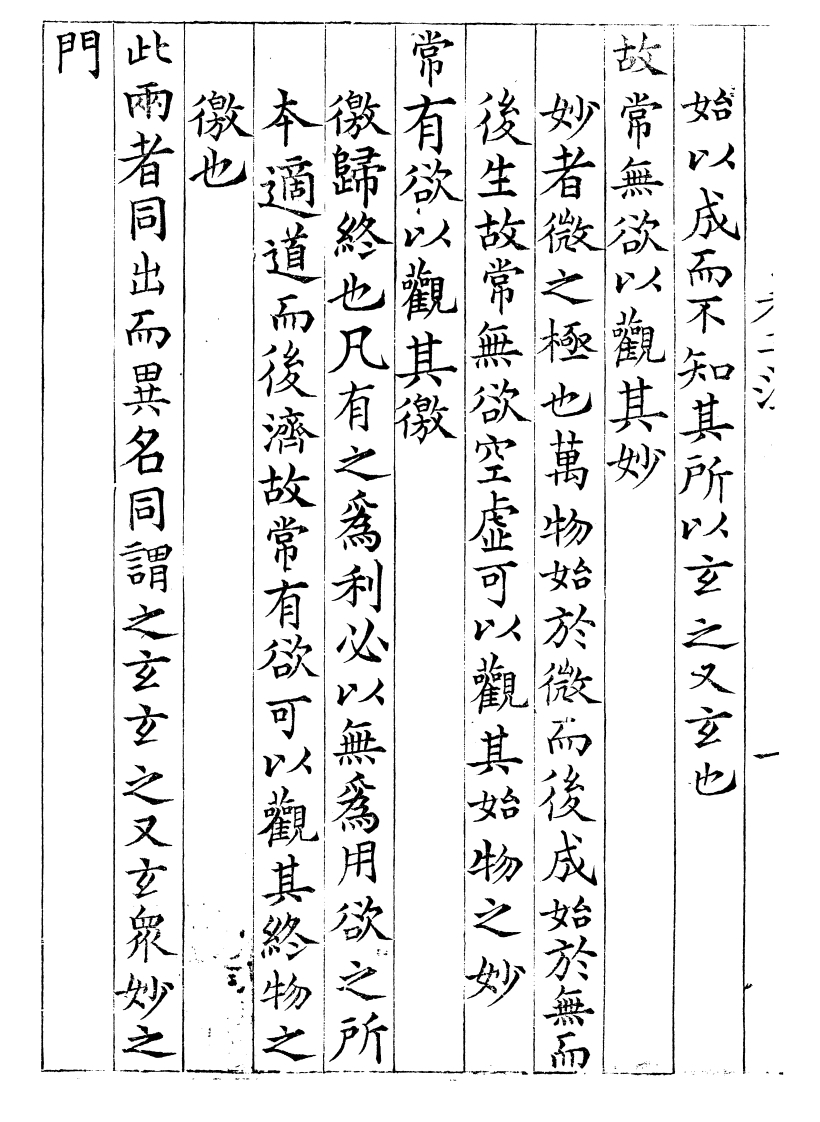 始以成而不知其所以玄之又玄也
故常無欲以觀其妙
妙者微之極也萬物始於微而後成始於無而
後生故常無欲空虛可以觀其始物之妙
常有欲以觀其徼
徼歸終也凡有之爲利必以無爲用欲之所
本適道而後濟故常有欲可以觀其終物之
徼也
此兩者同出而異名同謂之玄玄之又玄衆妙之
門